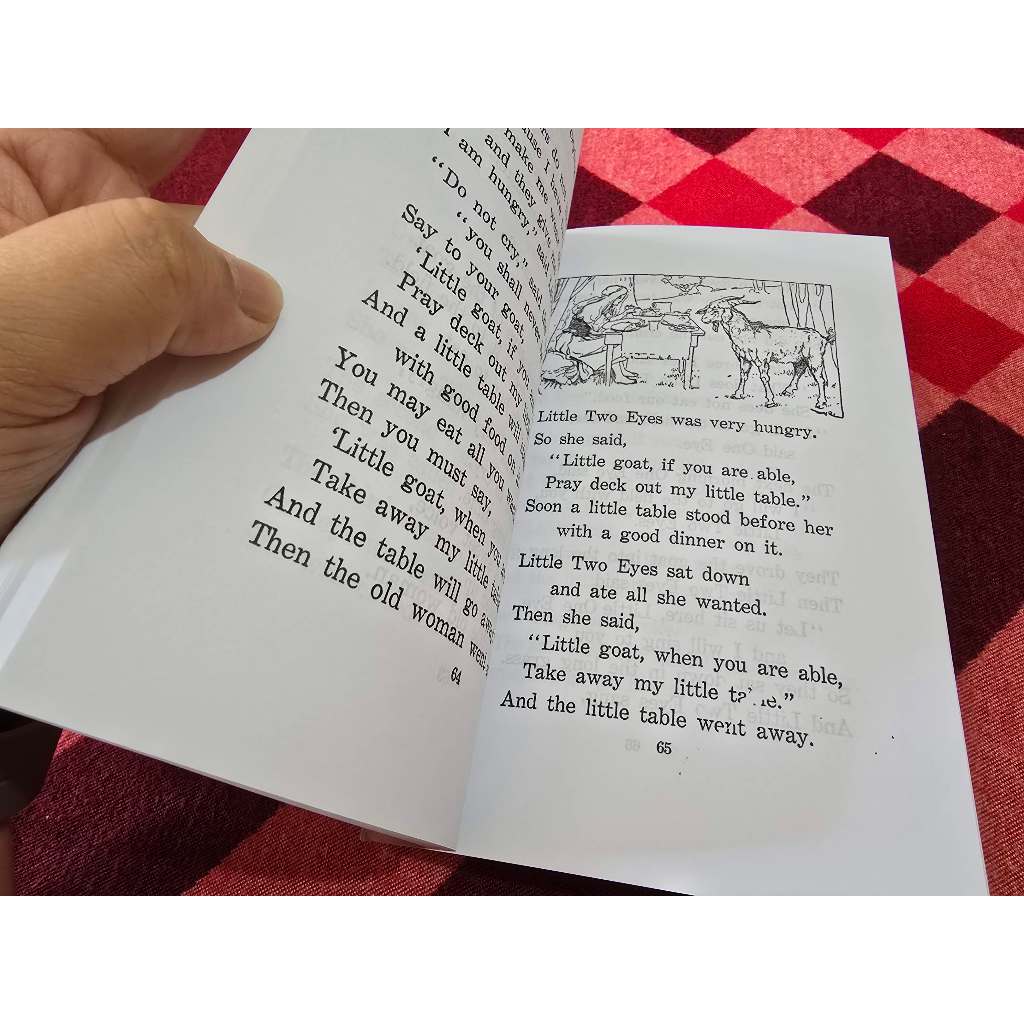 make me
and they give
I am hungry," said
"Do not cry," said
"you shall never
Say to your goat,
'Little goat, if you
Pray deck out my
And a little table will
with good food on
You may eat all you
Then you must say,
'Little goat, when you
Take away my little
And the table will go away
Then the old woman went
64
Little Two Eyes was very hungry.
So she said,
"Little goat, if you are able,
Pray deck out my little table."
Soon a little table stood before her
with a good dinner on it.
Little Two Eyes sat down
and ate all she wanted.
Then she said,
"Little goat, when you are able,
Take away my little table."
And the little table went away.
65